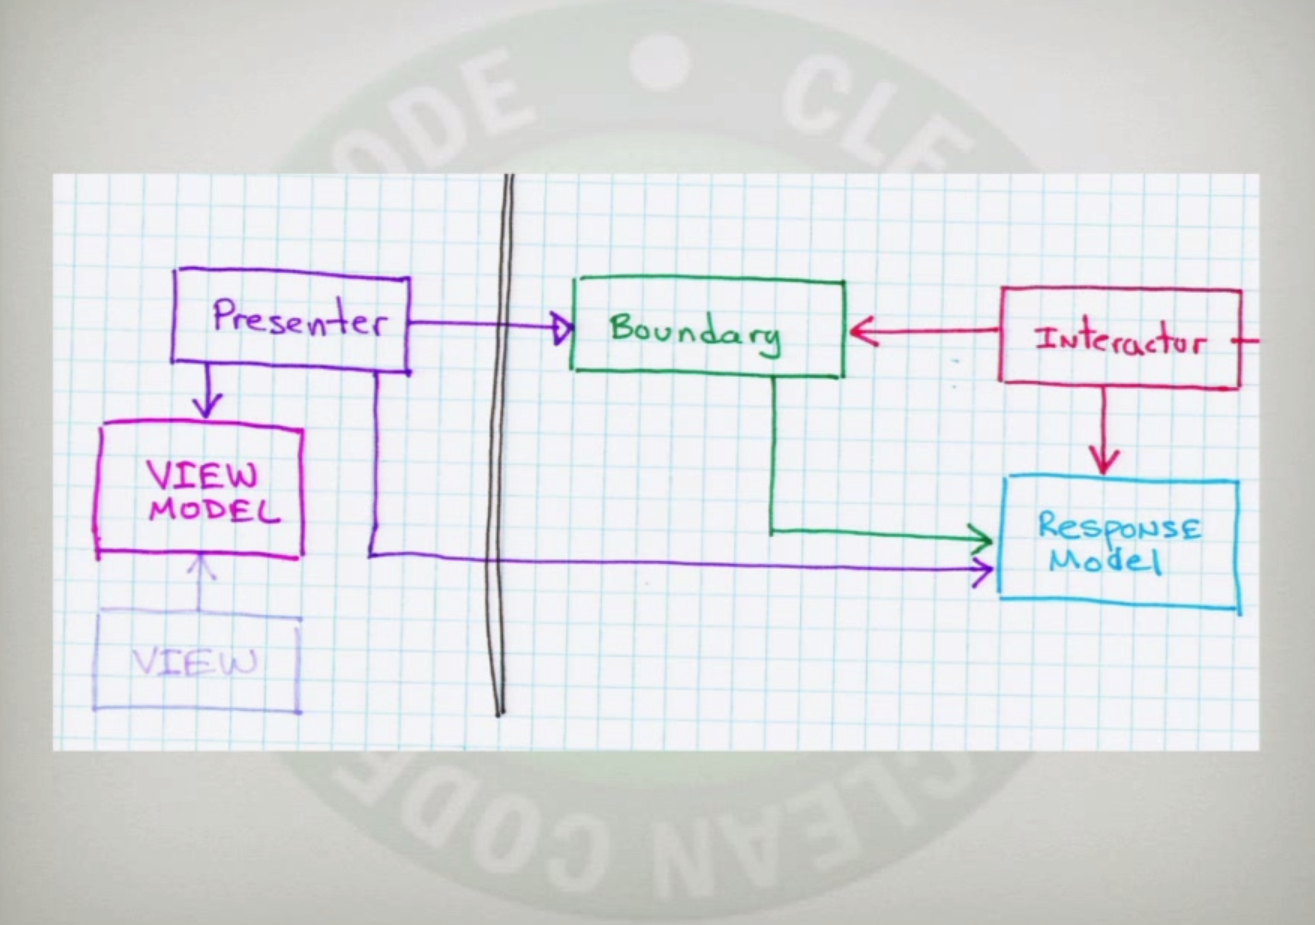 CODE • CLE
Presenter
Boundary
Interactor
VIEW
MODEL
RESPONSE
Model
VIEW
CLEAN CODE